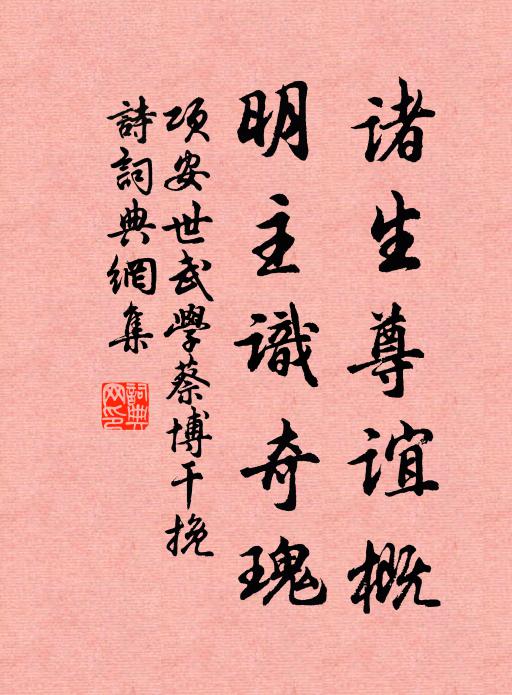 诸生尊谊概
明主識奇瑰
项安世武學蔡博干挽
詩詞典網集
詞典网印